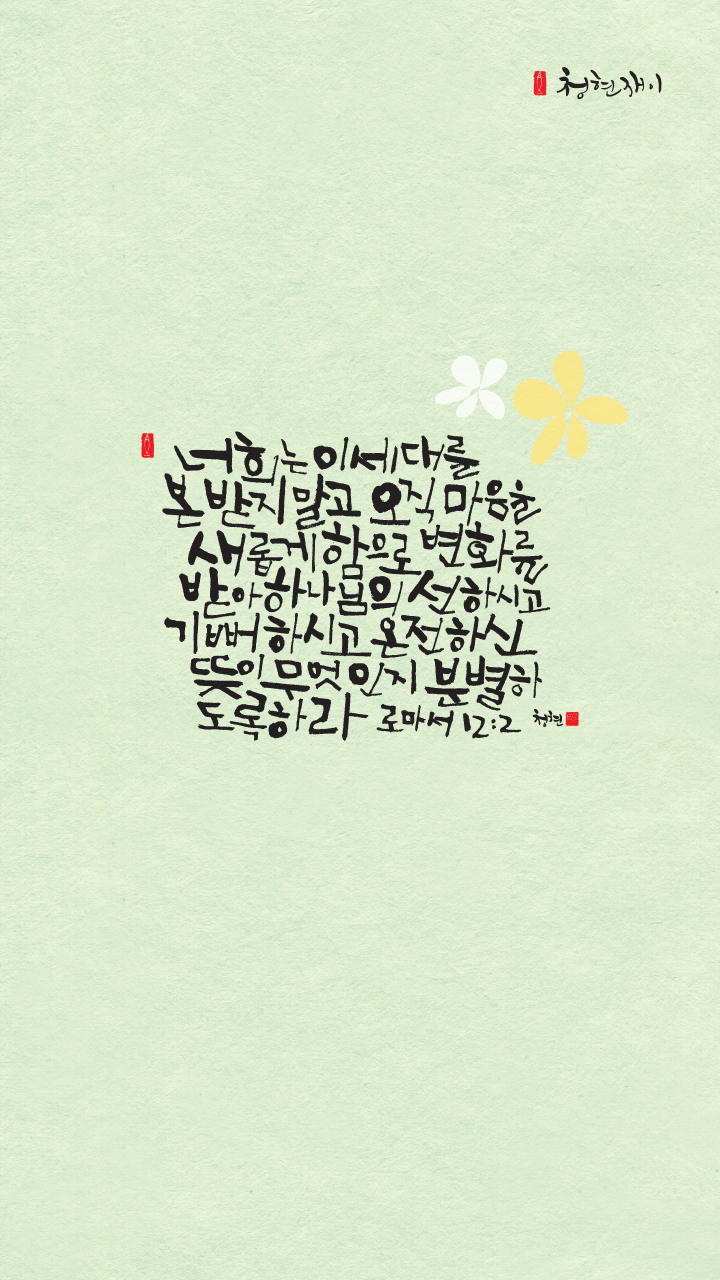 청현재이
너희는 이 세대를
본받지 말고 오직 마음을
새롭게 함으로 변화를
받아 하나님의 선하시고
기뻐하시고 온전하신
뜻이 무엇인지 분별하
도록하라 로마서 12:2 청현